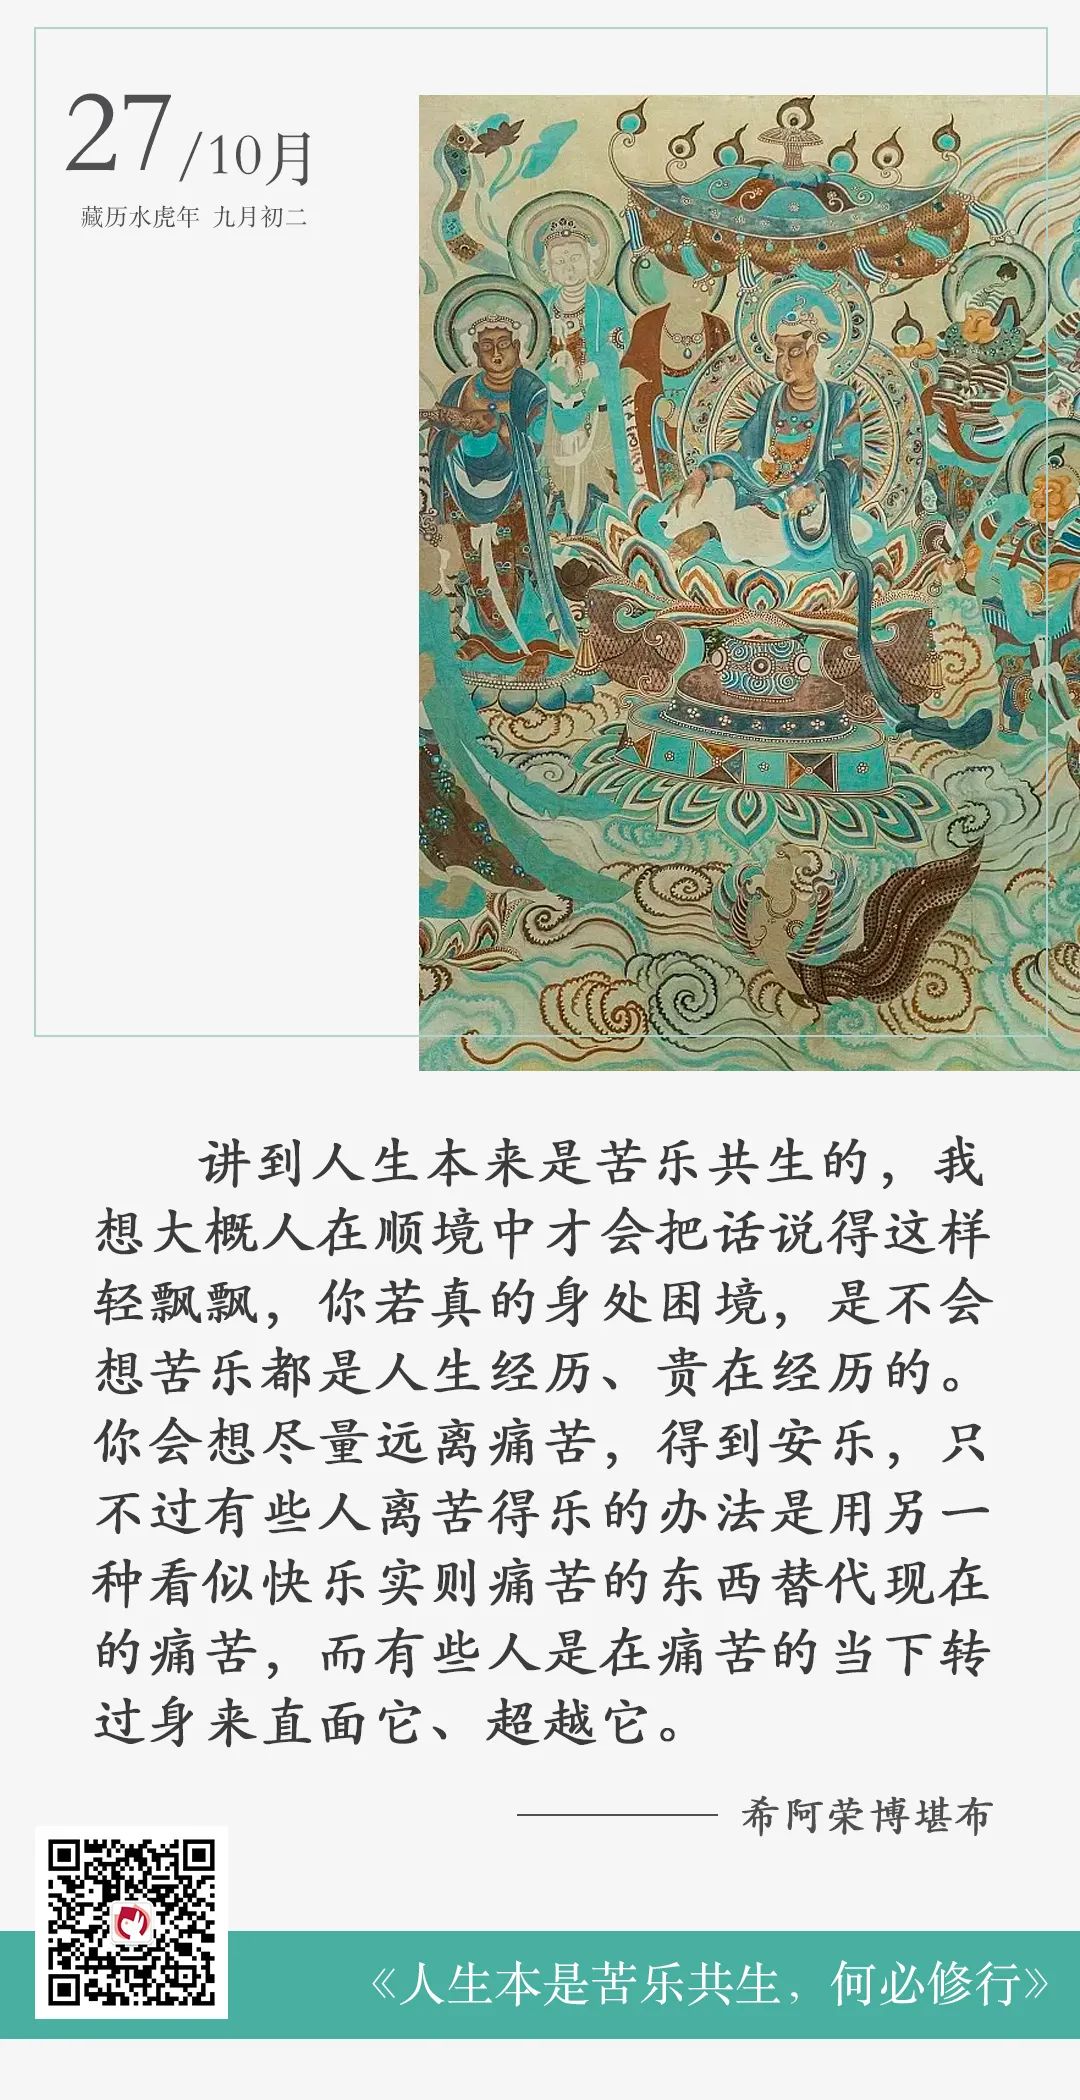 27/10月
藏历水虎年 九月初二
讲到人生本来是苦乐共生的，我
想大概人在顺境中才会把话说得这样
轻飘飘，你若真的身处困境，是不会
想苦乐都是人生经历、贵在经历的。
你会想尽量远离痛苦，得到安乐，只
不过有些人离苦得乐的办法是用另一
种看似快乐实则痛苦的东西替代现在
的痛苦，而有些人是在痛苦的当下转
过身来直面它、超越它。
——希阿荣博堪布
《人生本是苦乐共生，何必修行》